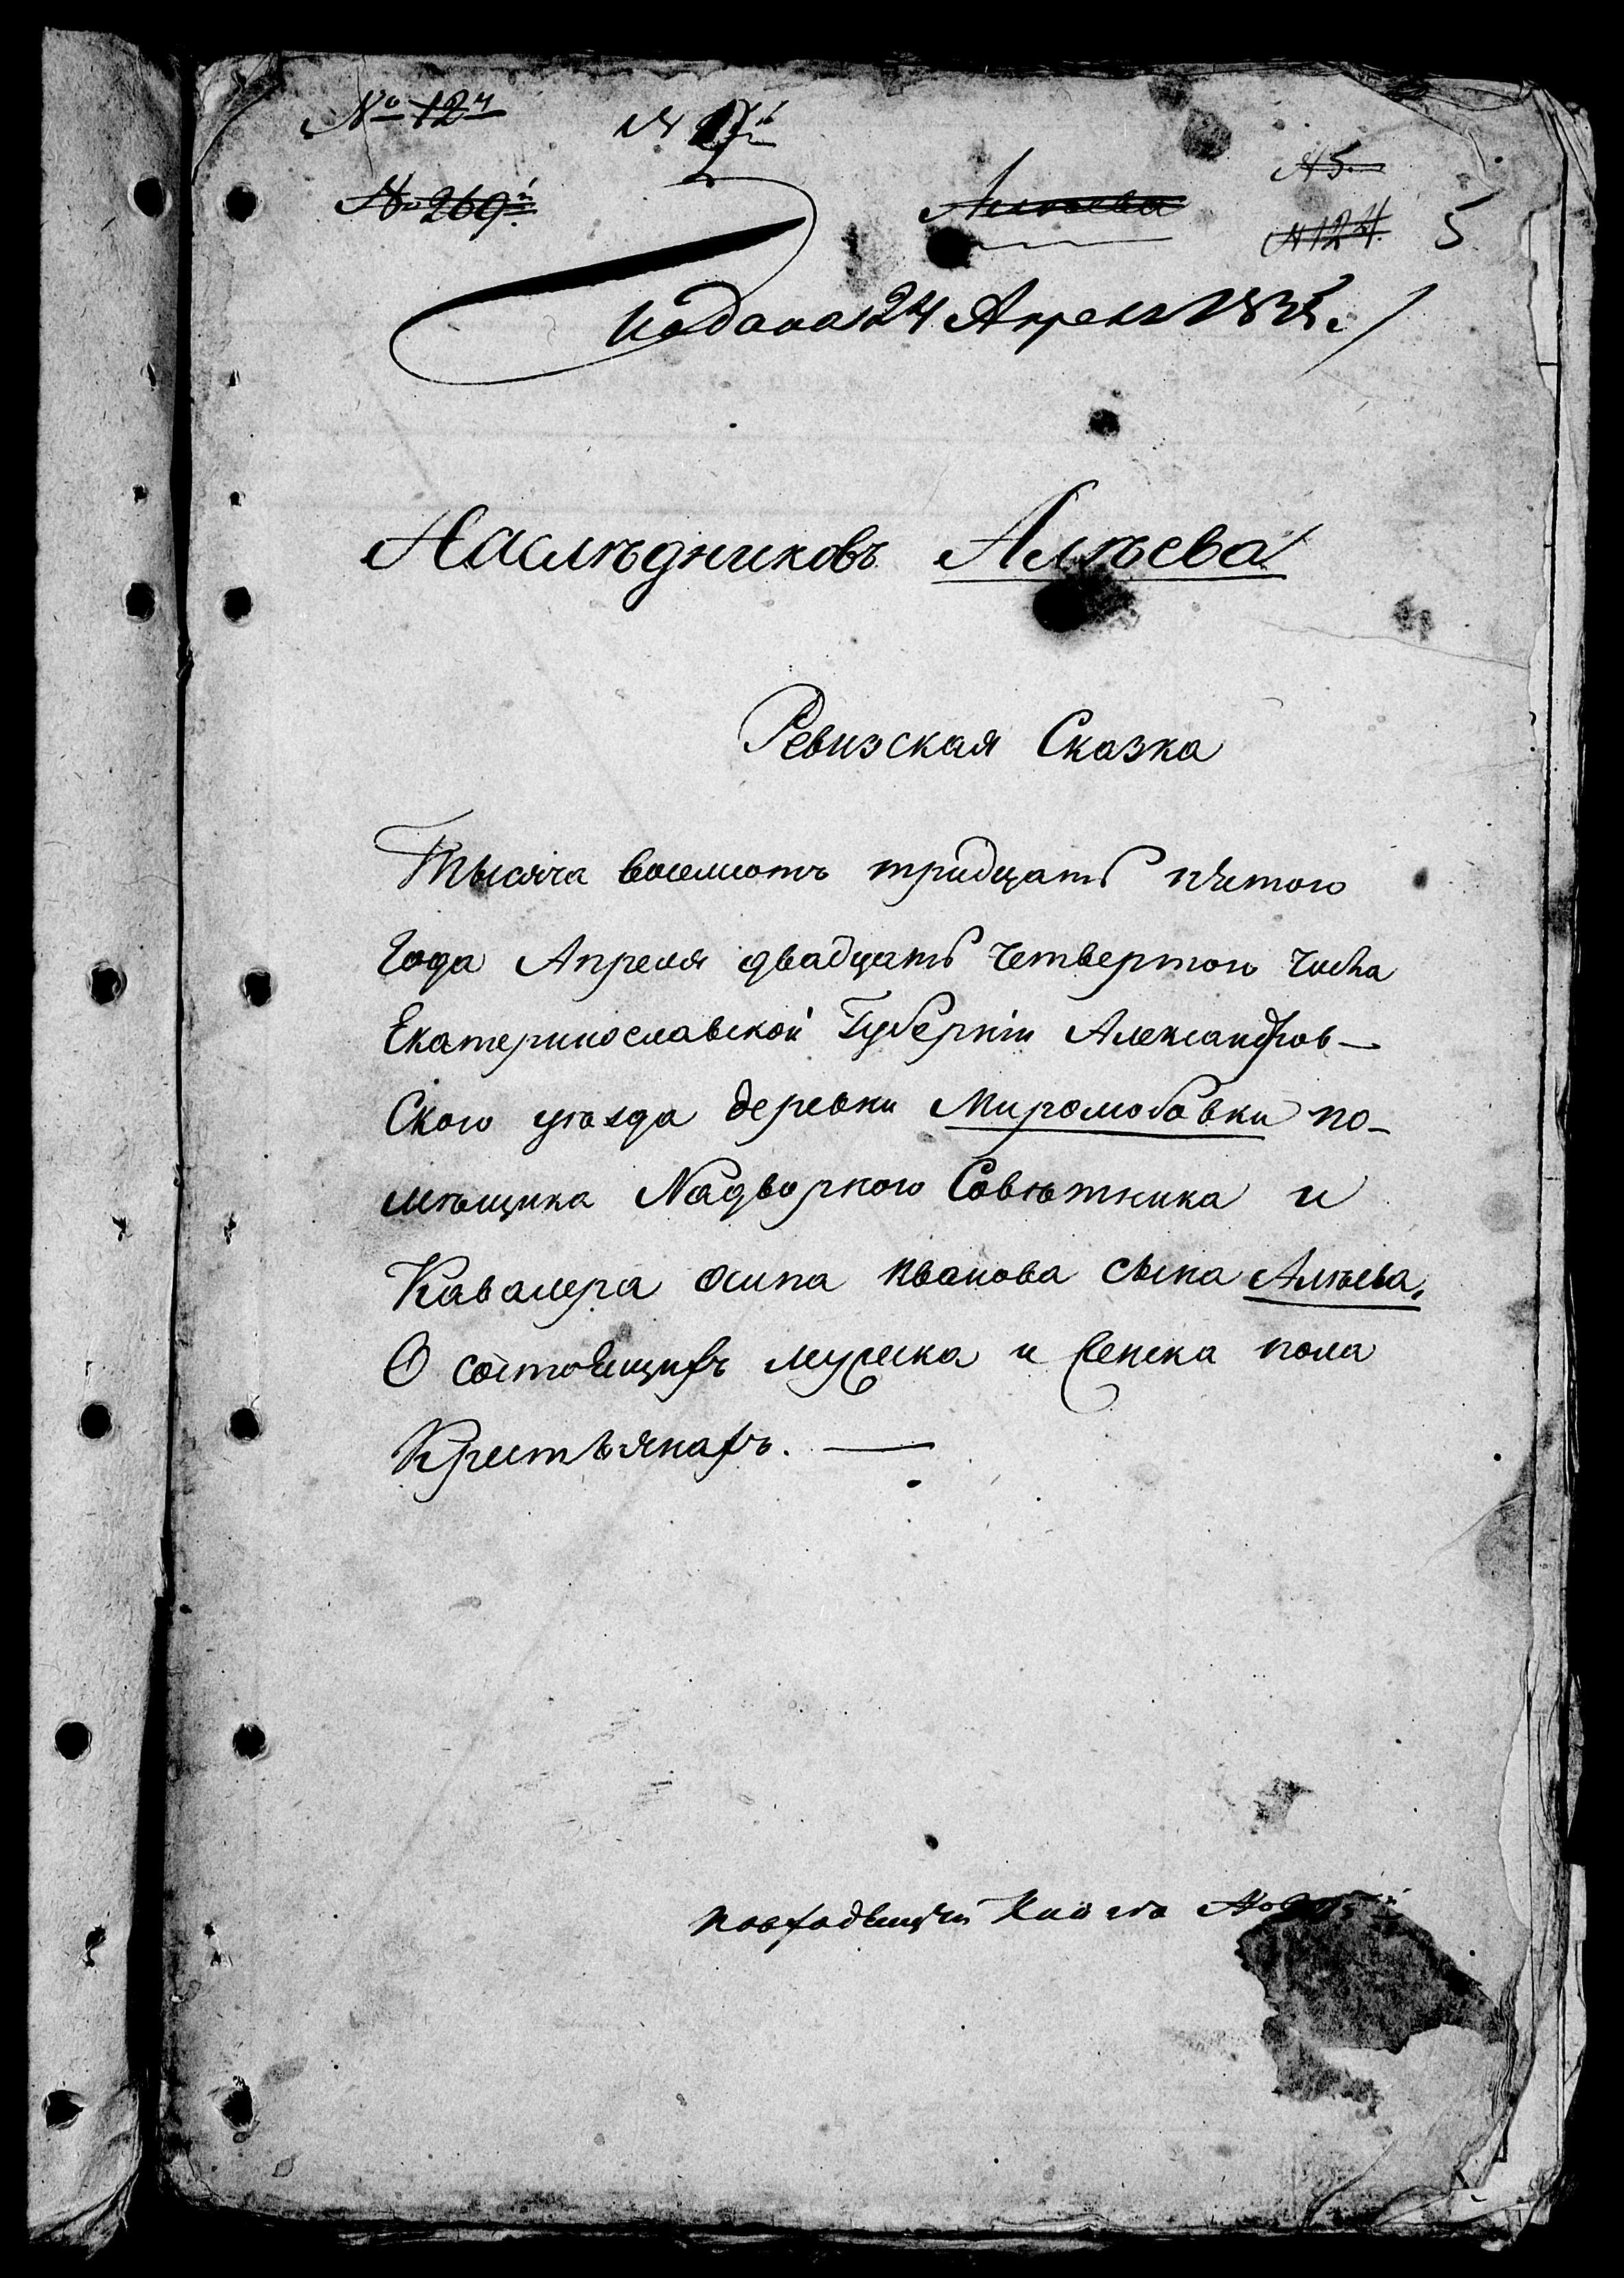 № 124
№
№ 269й
Алѣева
№ 5.
№ 124.
5
Подана 24 Апреля 1835.
Наслѣдниковъ Алѣева
Ревизская Сказка
Тысяча восемсотъ тридцать пятого
Года Апреля двадцать четвертого числа
Екатеринославской Губерніи Александров—
Ского уѣзда деревни Миролюбовки по-
мѣщика Надворного Совѣтника и
Кавалера осипа иванова сына Алѣева.
О состоящихъ мужеска и женска пола
Крестьянахъ. —